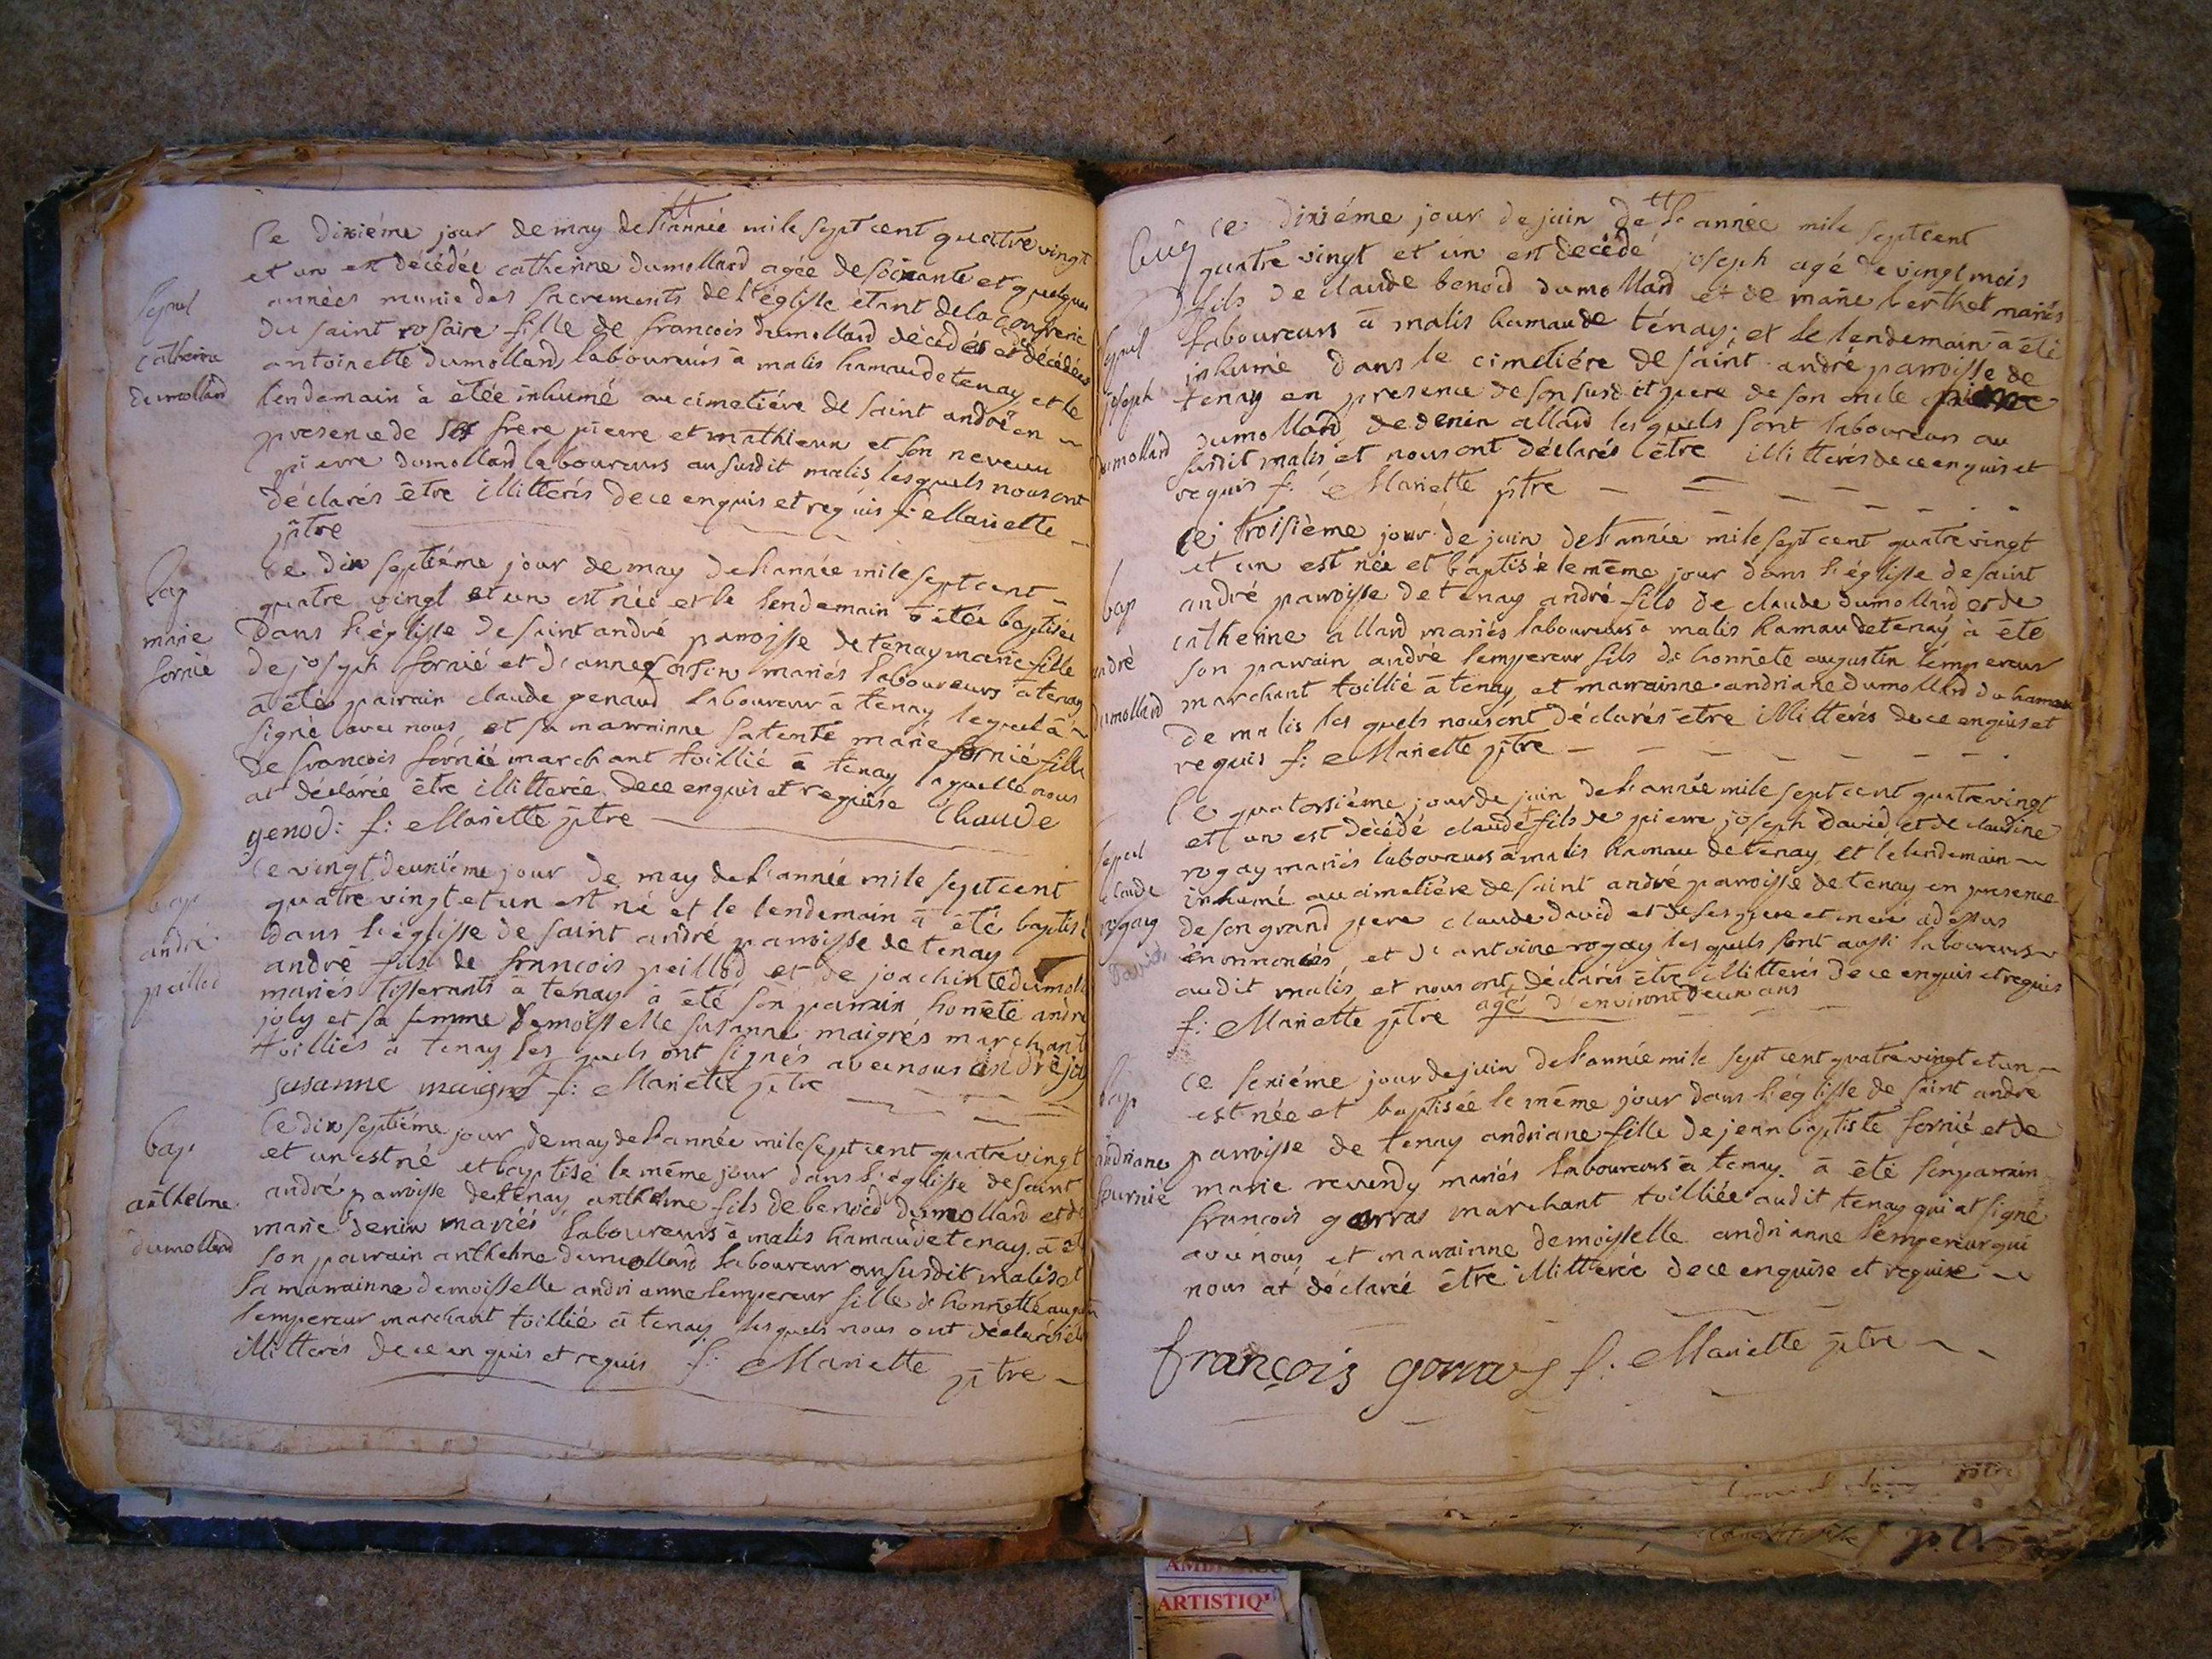 Le dixiéme jour de may de l'année mile sept cent quatre vingt
et un est décédée catherine dumollard agée de soixante et quelques
années munie des sacrements de l'églisse étant de la confrerie
du saint rosaire fille de francois dumollard décédés et décédée
antoinette dumollard laboureurs à malis hamau de tenay et le
lendemain à étée inhumé au cimetiére de saint andré en
presence de frere pierre et mathieux et son neveux
pierre dumollard laboureurs au susdit malis lesquels nous ont
déclarés être illitterés de ce enquis et requis f: Mariette
ptre
sepul
catherine
dumollard
Le dix septiéme jour de may de l'année mile sept cent
quatre vingt et un est née et le lendemain à étée baptisée
dans l'églisse de saint andré parroisse de tenay marie fille
de joseph fornié et d'anne mariés laboureurs à tenay
à étés parrain claude genaud laboureur à tenay lequel à
signé avec nous et sa marrainne sa tente marie fornié fille
de francois fornié marchant toillié à tenay laquelle nous
at déclarée être illitterée de ce enquis et requise Claude
genod: f: Mariette ptre
bap
marie
fornié
Le vingt deuxiéme jour de may de l'année mile sept cent
quatre vingt et un est né et le lendemain à été baptisé
dans l'églisse de saint andré parroisse de tenay
andré fils de francois peillod et de joachinte dumol
mariés tisserants à tenay à été son parrain honnête andré
joly et sa femme demoisselle susanne maigrés marchant
toilliés à tenay les quels ont signés avec nous andré joly
susanne maigret f: Mariette ptre
bap
andré
peillod
Le dix septiéme jour de may de l'année mile sept cent quatre vingt
et un est né et baptisé le même jour dans l'églisse de saint
andré parroisse de tenay anthelme fils de benoid dumollard et de
marie denin mariés laboureurs à malis hamau de tenay à été
son parrain anthelme dumollard laboureur au susdit malis et
sa marrainne demoisselle andrianne l'empereur fille d'honnête augustin
l'empereur marchant toillié à tenay les quels nous ont déclarés être
illitterés de ce enquis et requis f: Mariette ptre
bap
anthelme
dumollard
Le dixiéme jour de juin de l'année mile sept cent
quatre vingt et un est décédé joseph agé de vingt mois
fils de claude benoid dumollard et de marie berthet mariés
laboureurs à malis hamau de ténay; et le lendemain à été
inhumé dans le cimetiére de saint andré parroisse de
tenay en presence de son susdit pere de son oncle pierre
dumollard de denin allard les quels sont laboureurs au
susdit malis et nous ont déclarés être illitterés de ce enquis et
requis f: Mariette ptre
sepul
joseph
dumollard
Le troisième jour de juin de l'année mile sept cent quatre vingt
et un est née et baptisé le même jour dans l'églisse de saint
andré parroisse de tenay andré fils de claude dumollard et de
catherine allard mariés laboureurs à malis hamau de tenay à été
son parrain andré l'empereur fils de honnête augustin l'empereur
marchant toillié à tenay, et marrainne andriane dumollard du hamau
de malis les quels nous ont déclarés être illitterés de ce enquis et
requis f: Mariette ptre
bap
andré
dumollard
Le quatorsiéme jour de juin de l'année mile sept cent quatre vingt
et un est décédé claude fils de pierre joseph david et de claudine
rogay mariés laboureurs à malis hamau de tenay, et le lendemain
inhumé au cimetiére de saint andré parroisse de tenay en presence
de son grand pere claude david et de ses pere et mere adessus
énonnonciés, et d'antoine rogay les quels sont aussi laboureurs
audit malis, et nous ont déclarés être illitterés de ce enquis et requis
f: Mariette ptre agé d'environt deux ans
sepul
claude
rogay
david
Le sexiéme jour de juin de l'année mile sept cent quatre vingt et un
est née et baptisée le même jour dans l'églisse de saint andre
parroisse de tenay andriane fille de jean baptiste fornié et de
marie revendy mariés laboureurs à tenay à été son parrain
francois gorras marchant toilliée audit tenay qui at signé
avec nous et marrainne demoisselle andrianne l'empereur qui
nous at déclarée être illitterée de ce enquise et requise
françois gorras f: Mariette ptre
bap
andriane
fournié
ARTISTIQ